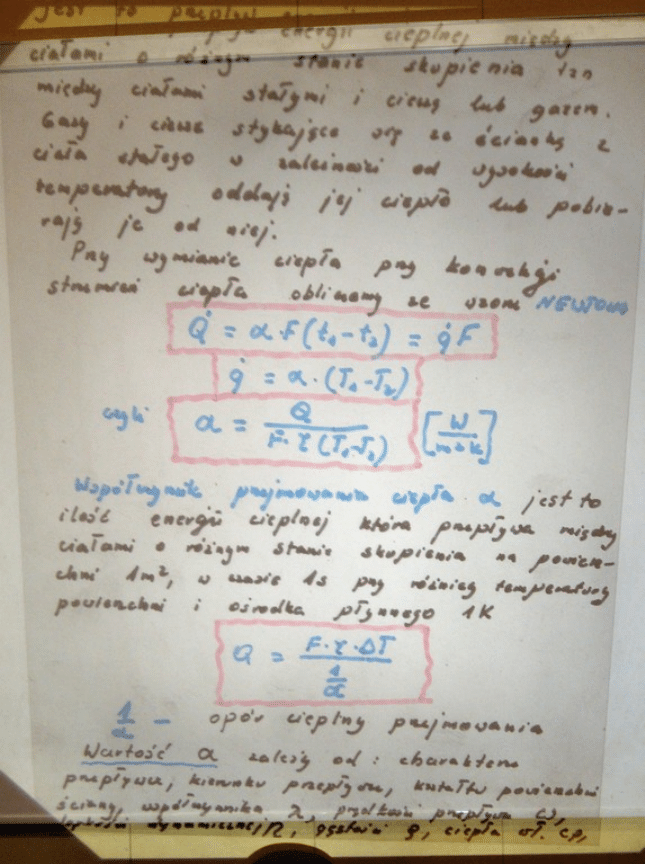 jest to przepływ energii cieplnej między
ciałami o różnym stanie skupienia tzn
między ciałami stałymi i cieczą lub gazem.
Gazy i ciecze stykające się ze ścianką z
ciała stałego w zależności od wysokości
temperatury oddają jej ciepło lub pobie-
rają je od niej.
Przy wymianie ciepła przy konwekcji
strumień ciepła obliczamy ze wzoru NEWTONA
Q̇ = α·F(t₁-t₂) = q̇F
q̇ = α·(T₁-T₂)
czyli α = Q / F·τ(T₁-T₂) [W/m²·K]
Współczynnik przejmowania ciepła α jest to
ilość energii cieplnej która przepływa między
ciałami o różnym stanie skupienia na powierz-
chni 1m², w czasie 1s przy różnicy temperatury
powierzchni i ośrodka płynnego 1K
Q = F·τ·ΔT / (1/α)
1/α - opór cieplny przejmowania
Wartość α zależy od: charakteru
przepływu, kierunku przepływu, kształtu powierzchni
ściany, współczynnika λ, prędkości przepływu ω,
lepkości dynamicznej η, gęstości ρ, ciepła wł. cp,